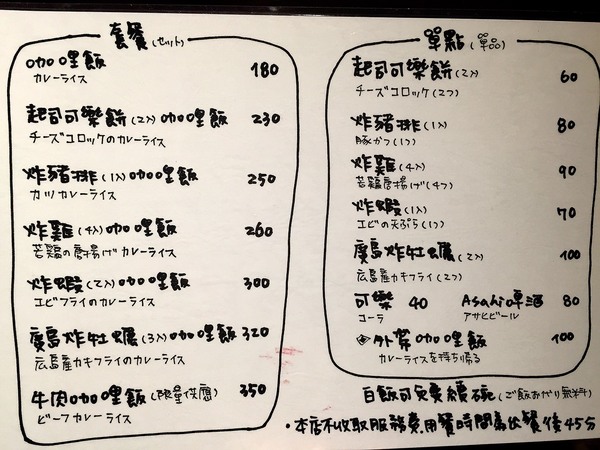 套餐(セット)
咖哩飯 180
カレーライス
起司可樂餅(2入)咖哩飯 230
チーズコロッケのカレーライス
炸豬排(1入)咖哩飯 250
カツカレーライス
炸雞(4入)咖哩飯 260
若鶏の唐揚げカレーライス
炸蝦(2入)咖哩飯 300
エビフライのカレーライス
廣島炸牡蠣(3入)咖哩飯 320
広島産カキフライのカレーライス
牛肉咖哩飯(限量供應) 350
ビーフカレーライス
單點(單品)
起司可樂餅(2入) 60
チーズコロッケ(2つ)
炸豬排(1入) 80
豚かつ(1つ)
炸雞(4入) 90
若鶏唐揚げ(4つ)
炸蝦(1入) 70
エビの天ぷら(1つ)
廣島炸牡蠣(2入) 100
広島産カキフライ(2つ)
可樂 40 Asahi啤酒 80
コーラ アサヒビール
外帶咖哩飯 100
カレーライスを持ち帰る
白飯可免費續碗(ご飯おかわり無料)
・本店不收取服務費.用餐時間為出餐後45分